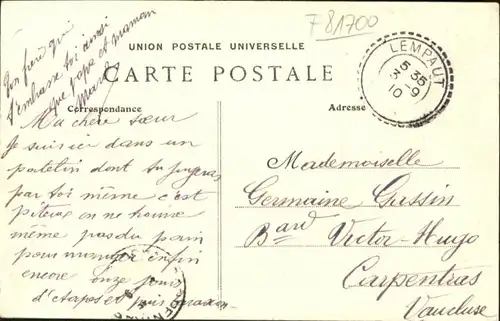 F 81700
Ton frère qui
t'embrasse toi ainsi
que papa et maman
UNION POSTALE UNIVERSELLE
CARTE POSTALE
Correspondance
Adresse
LEMPAUT
5 35
3 -9
10
Ma chère sœur
je suis ici dans un
patelin dont tu jugeras
par toi même c'est
piteux on ne trouve
même pas du pain
pour manger enfin
encore onze jours
d'étapes et puis
Mademoiselle
Germaine Gassin
Bard Victor-Hugo
Carpentras
Vaucluse